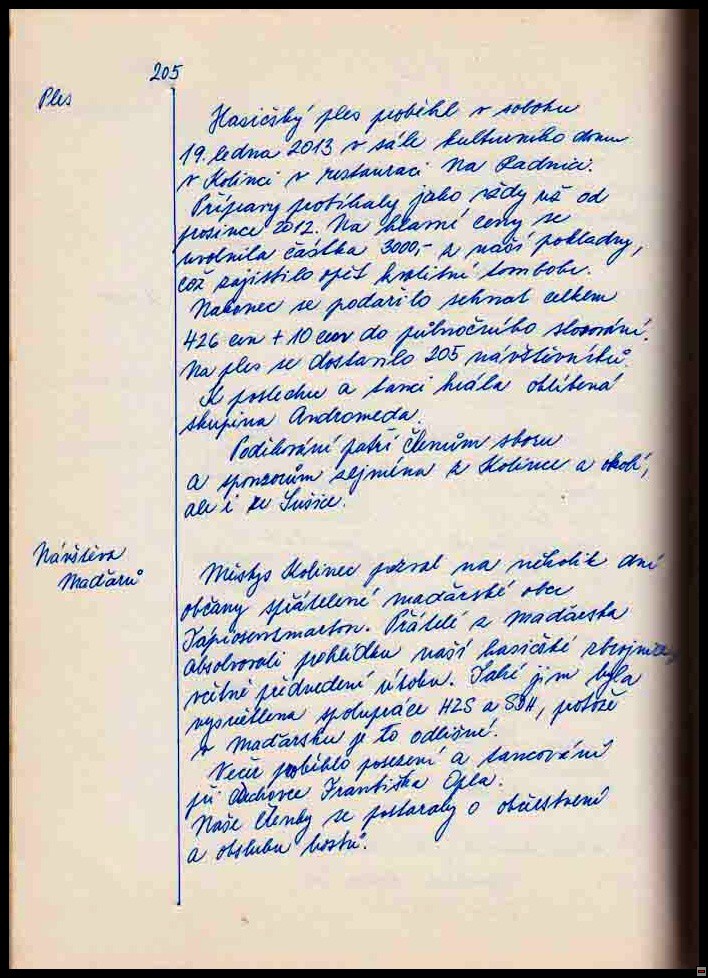 205
Ples
Hasičský ples proběhl v sobotu
19. ledna 2013 v sále kulturního domu
v Kolinci v restauraci Na Radnici.
Přípravy probíhaly jako vždy už od
prosince 2012. Na hlavní ceny se
uvolnila částka 3000,- z naší pokladny,
což zajistilo opět kvalitní tombolu.
Nakonec se podařilo sehnat celkem
426 cen + 10 cen do půlnočního slosování.
Na ples se dostavilo 205 návštěvníků.
K poslechu a tanci hrála oblíbená
skupina Andromeda.
Poděkování patří členům sboru
a sponzorům zejména z Kolince a okolí,
ale i ze Sušice.
Návštěva
Maďarů
Městys Kolinec pozval na několik dní
občany spřátelené maďarské obce
Tápiószentmarton. Přátelé z Maďarska
absolvovali prohlídku naší hasičské zbrojnice,
včetně předvedení útoku. Také jim byla
vysvětlena spolupráce HZS a SDH, protože
v Maďarsku je to odlišné.
Večer proběhlo posezení a tancování
při dechovce Františka Opla.
Naše členky se postaraly o občerstvení
a obsluhu hostů.